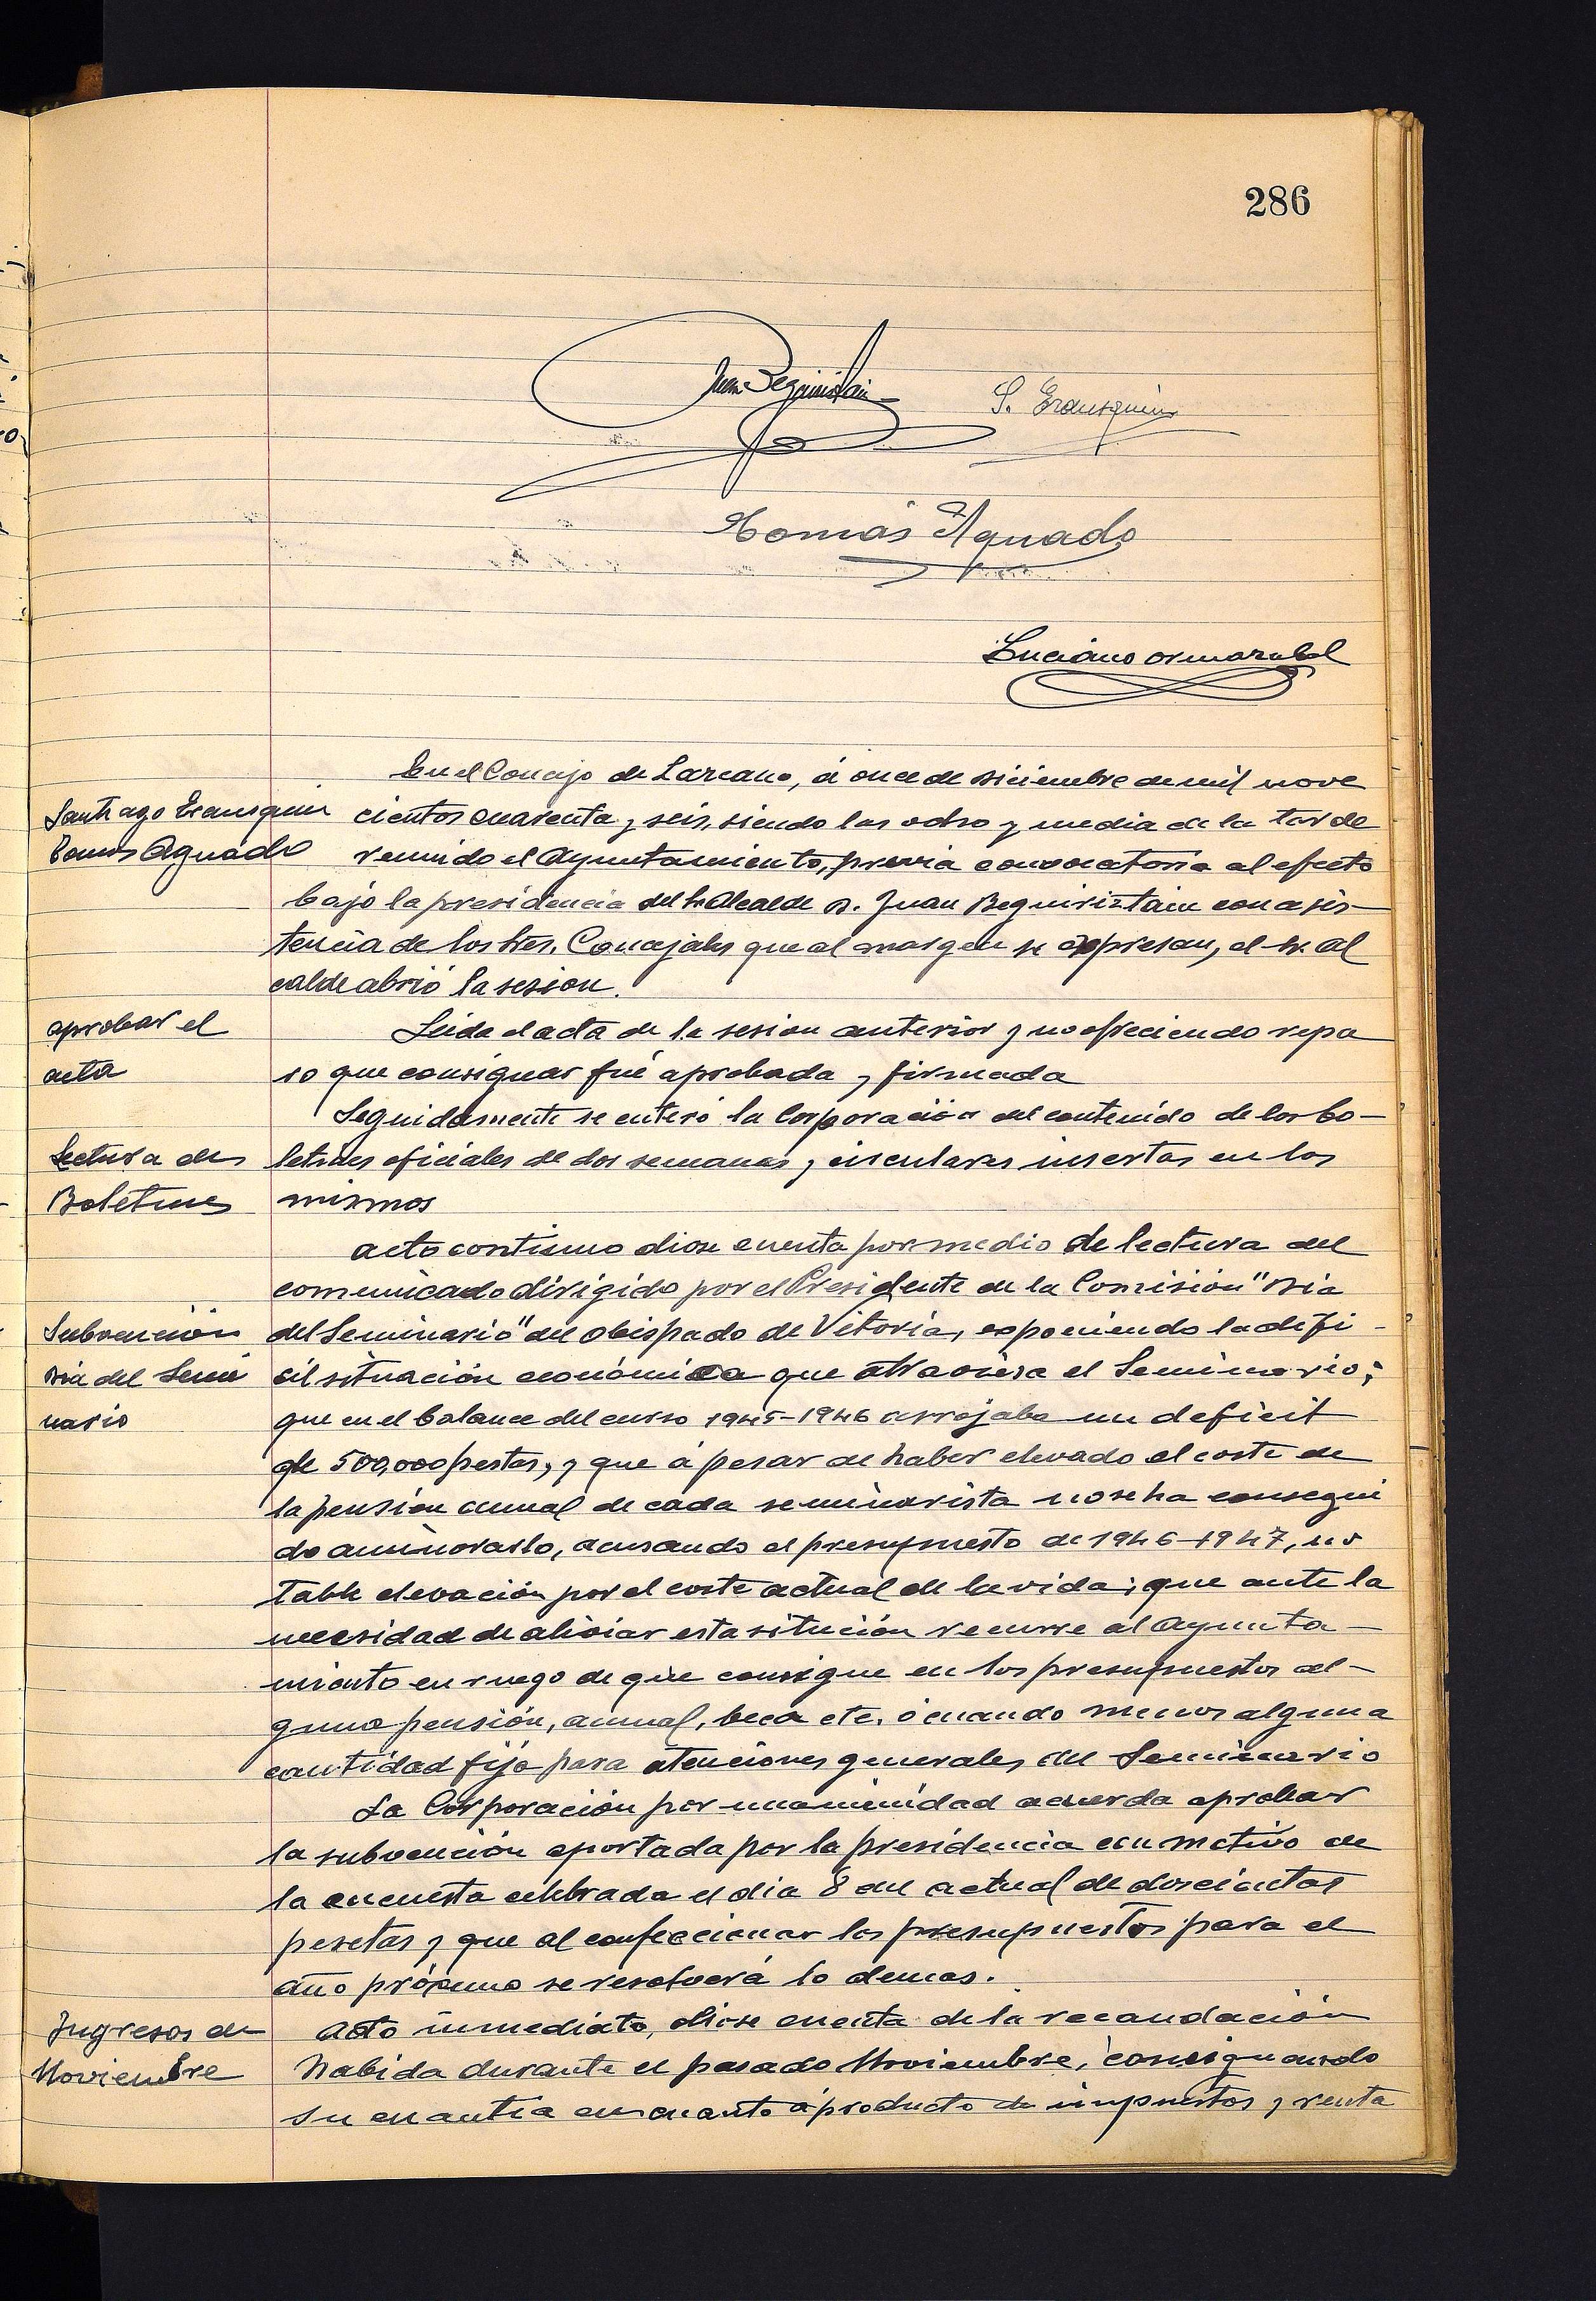 286
Juan Beguiristain
S. Erausquin
Tomás Aguado
Luciano Ormazabal
En el Concejo de Lazcano, á once de diciembre de mil nove
Santiago Erausquin
cientos cuarenta y seis, siendo las ocho y media de la tarde
Tomás Aguado
reunido el Ayuntamiento, previa convocatoria al efecto
bajo la presidencia del Sr. Alcalde D. Juan Beguiriztain con asis-
tencia de los Sres. Concejales que al margen se expresan, el Sr. Al
calde abrió la sesion.
aprobar el
acta
Leida el acta de la sesion anterior y no ofreciendo repa
ro que consignar fué aprobada y firmada
Lectura de
Boletines
Seguidamente se enteró la Corporación del contenido de los bo-
letines oficiales de dos semanas y circulares insertas en los
mismos
Subvención
Dia del Semi
nario
acto contínuo diose cuenta por medio de lectura del
comunicado dirigido por el Presidente de la Comisión "Dia
del Seminario" del Obispado de Vitoria, exponiendo la difi-
cil situación económica que atraviesa el Seminario;
que en el balance del curso 1945-1946 arrojaba un deficit
de 500,000 pestas, y que á pesar de haber elevado el coste de
la pension anual de cada seminarista no se ha consegui
do aminorarlo, acusando el presupuesto de 1946-1947, no
table elevación por el coste actual de la vida; que ante la
necesidad de aliviar esta situción recurre al Ayunta-
miento en ruego de que consigne en los presupuestos al-
guna pensión, anual, beca etc. ó cuando menos alguna
cantidad fija para atenciones generales del Seminario
La Corporación por unanimidad acuerda aprobar
la subvención aportada por la presidencia con motivo de
la encuesta celebrada el dia 8 del actual de doscientas
pesetas y que al confeccionar los presupuestos para el
año próximo se resolverá lo demas.
Ingresos de
Noviembre
Acto inmediato, diose cuenta de la recaudación
habida durante el pasado Noviembre, consignando
su cuantia en cuanto á producto de impuestos y renta